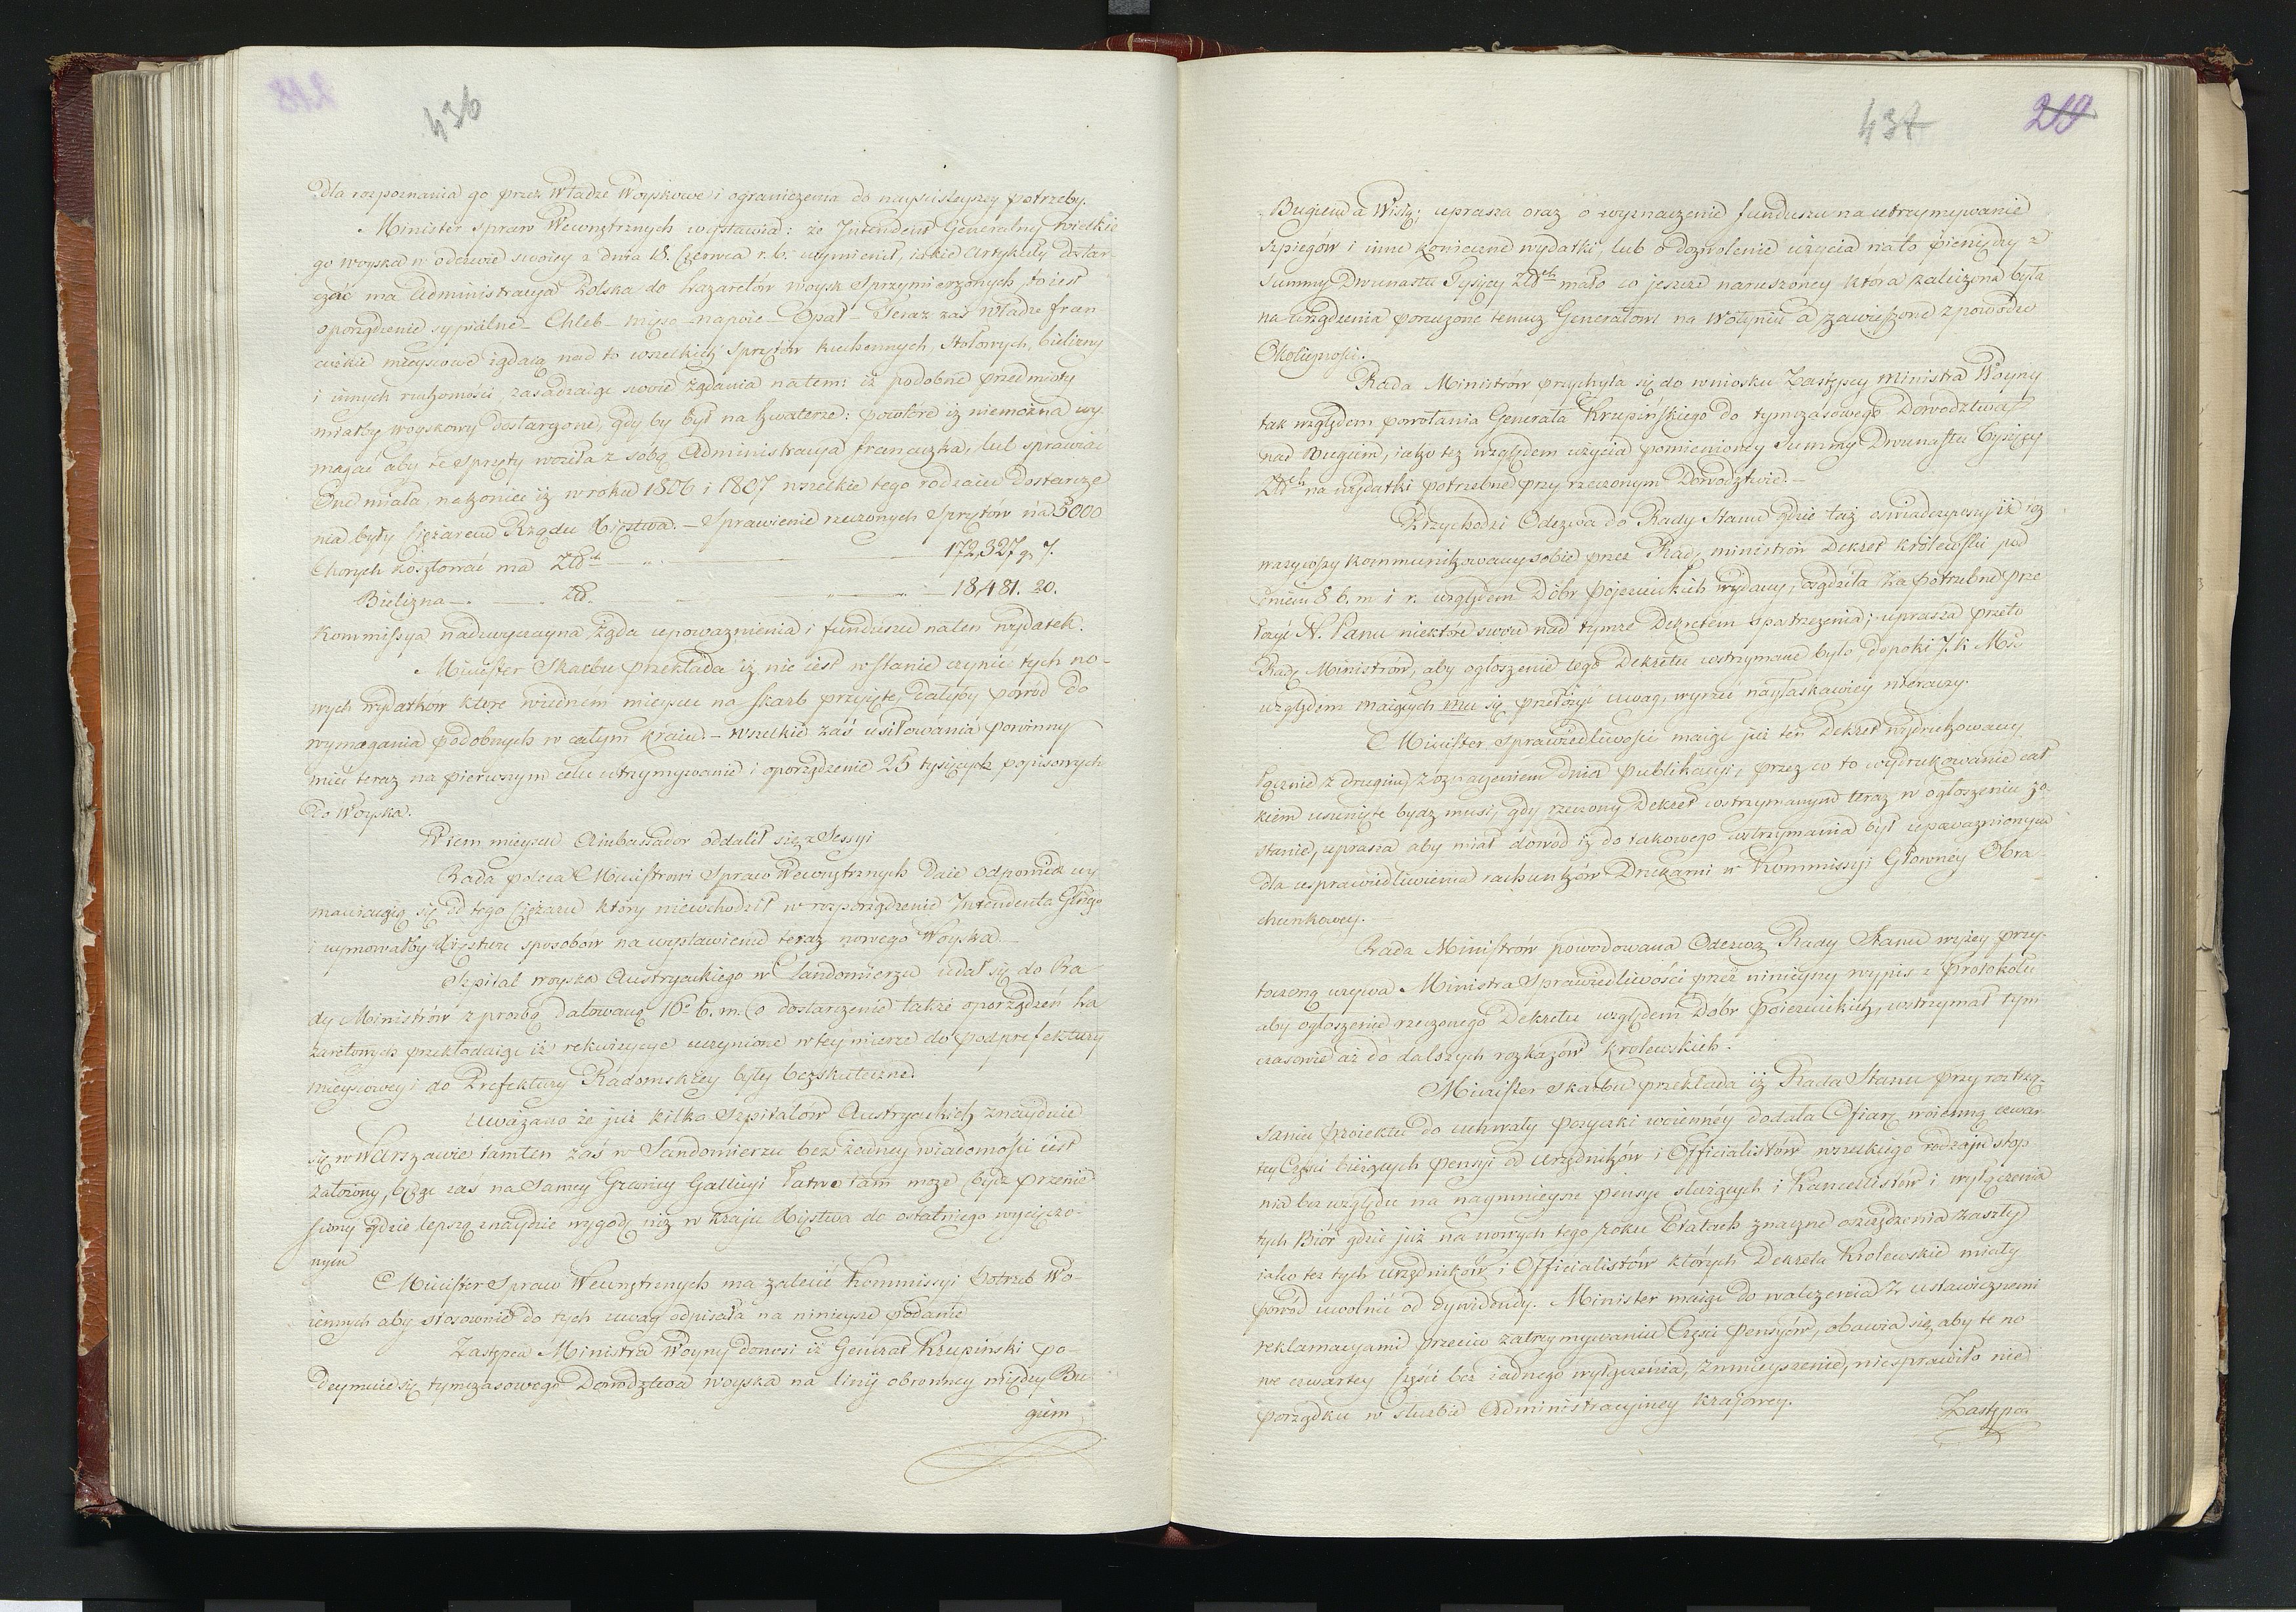 436
dla rozpoznania go przez Władze Woyskowe i ograniczenia do nayściśleyszey potrzeby.
Minister Spraw Wewnętrznych wystawia: że Jntendent Generalny wielkie
go woyska w odezwie swoiey z dnia 18. Czerwca r. b. wymienił, iakie Artykuły dostar-
czać ma Administracya Polska do Lazaretów woysk Sprzymierzonych, to iest
oporządzenie sypialne – Chleb – mięso – napoie – Opał – Teraz zaś Władze fran
cuzkie mieyscowe żądaią nad to wszelkich Sprzętów kuchennych, Stołowych, bielizny
i innych ruchomości, zasadzaiąc swoie żądania na tem: iż podobne przedmioty
miałby woyskowy dostarczone, gdy by był na kwaterze: powtóre iż niemożna wy-
magać aby te sprzęty woziła z sobą Administracya francuzka, lub sprawiać
One miała, nakoniec iż w roku 1806 i 1807 wszelkie tego rodzaiu dostarcze
nia były ciężarem Rządu Xięstwa. – Sprawienie rzeczonych Sprzętów na 5000
Chorych kosztować ma Złłch — 172,327 gr 7.
Bielizna — Złł. — 18,481. 20.
Kommissya nadzwyczayna żąda upoważnienia i funduszu na ten wydatek.
Minister Skarbu przekłada iż nie iest w stanie czynić tych no-
wych wydatków które w iednem mieyscu na Skarb przyięte, dałyby powód do
wymagania podobnych w całym kraiu. – wszelkie zaś usiłowania powinny
mieć teraz na pierwszym celu utrzymywanie i oporządzenie 25 tysięcy popisowych
do Woyska.
W tem mieyscu Ambassador oddalił się z Sessyi
Rada poleca Ministrowi Spraw Wewnętrznych daie odpowiedz wy
mawiaiącą się od tego Ciężaru który niewchodził w rozporządzenie Jntendenta Glnego
i uymowałby Xięstwu sposobów na wystawienie teraz nowego Woyska. –
Szpital woyska Austryackiego w Sandomierzu udał się do Ra-
dy Ministrów z prozbą datowaną 16o b. m. o dostarczenie także oporządzeń La
zaretowych przekładaiąc iż rekwizycye uczynione w tey mierze do podprefektury
mieyscowey i do Prefektury Radomskiey były bezskuteczne.
Uważano że już kilka Szpitalów Austryackich znayduie
się w Warszawie tamten zaś w Sandomierzu bez żadney wiadomości iest
założony, będąc zaś na samey Granicy Gallicyi łatwo tam może bydz przenie
siony gdzie lepszą znaydzie wygodę niż w kraju Xięstwa do ostatniego wycięczo-
nym
Minister Spraw Wewnętrznych ma zalecić Kommissyi Potrzeb Wo
iennych aby stosownie do tych uwag odpisała na ninieysze podanie
Zastępca Ministra Woyny donosi iż Generał Krupiński po-
deymuie się tymczasowego Dowodztwa woyska na linij obronney między Bu
giem
437
219
Bugiem a Wisłą; uprasza oraz o wyznaczenie funduszu na utrzymywanie
szpiegów i inne konieczne wydatki, lub o dozwolenie użycia na to pieniędzy z
summy Dwunastu Tysięcy Złłch mało co jeszcze naruszoney która zaliczona była
na urządzenia poruczone temuz Generałowi na Wołyniu a zawieszone z powodu
Okoliczności.
Rada Ministrów przychyla się do wniosku Zastępcy Ministra Woyny
tak względem powołania Generała Krupińskiego do tymczasowego Dowodztwa
nad Bugiem, iako tez względem użycia pomienioney Summy Dwunastu Tysięcy
Złłch na wydatki potrzebne przy rzeczonym Dowodztwie. –
Przychodzi Odezwa do Rady Stanu gdzie taż oświadczywszy iż roz
ważywszy kommunikowany sobie przez Radę ministrów Dekret Królewski pod
dniem 8 b. m. i r. względem Dóbr pojezuickich wydany, osądziła za potrzebne prze
łożyć N. Panu niektóre swoie nad tymże Dekretem spostrzeżenia; uprasza przeto
Radę Ministrów, aby ogłoszenie tego Dekretu wstrzymane było, dopoki J. K. Mć
względem maiących mu się przełożyć uwag, wyrzec nayłaskawiey nieraczy.
Minister Sprawiedliwości maiąc już ten Dekret wydrukowany
łącznie z drugim z oznaczeniem dnia publikacyi, przez co to wydrukowanie cał
kiem usunięte bydz musi, gdy rzeczony Dekret wstrzymanym teraz w ogłoszeniu zo-
stanie, uprasza aby miał dowod iż do takowego wstrzymania był upoważnionym
dla usprawiedliwienia rachunków Drukarni w Kommissyi Głowney Obra-
chunkowey. –
Rada Ministrów powodowana Odezwą Rady Stanu wyżey przy-
toczoną wzywa Ministra Sprawiedliwości przez ninieyszy wypis z protokołu
aby ogłoszenie rzeczonego Dekretu względem Dóbr pojezuickich, wstrzymał tym
czasowie aż do dalszych rozkazów krolewskich.
Minister Skarbu przekłada iż Rada Stanu przy roztrzą-
saniu proiektu do uchwały pożyczki woienney dodała Ofiarę woienną czwar-
tey Części bieżących pensyi od Urzędników i Officialistów wszelkiego rodzaju stop
nia bez względu na naymnieysze pensye służących i Kancellistów i wyłączenia
tych Biór gdzie już na nowych tego roku Etatach znaczne oszczędzenia zaszły
iako tez tych urzędników i Officialistów których Dekreta Krolewskie miały
powód uwolnić od dywidendy. Minister maiąc do walczenia z ustawicznemi
reklamacyami przeciw zatrzymywaniu Części pensyów, obawia się aby te no-
we czwartey części bez żadnego wyłączenia, zmnieyszenie, niesprawiło nie
porządku w służbie Administracyiney krajowey.
Zastępca